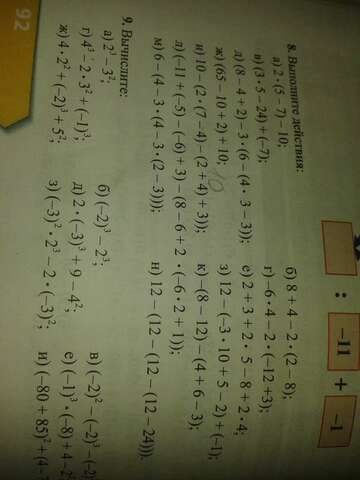 : -11 + -1
8. Выполните действия:
а) 2 · (5 − 7) − 10; б) 8 + 4 − 2 · (2 − 8);
в) (3 · 5 − 24) + (−7); г) −6 · 4 − 2 · (−12 +3);
д) (8 − 4 + 2) − 3 · (6 − (4 · 3 − 3)); е) 2 + 3 + 2 · 5 − 8 + 2 · 4;
ж) (65 − 10 + 2) + 10; 10 з) 12 − (−3 · 10 + 5 − 2) + (−1);
и) 10 − (2 · (7 − 4) − (2 + 4) + 3)); к) −(8 − 12) − (4 + 6 − 3);
л) (−11 + (−5) − (−6) + 3) − (8 − 6 + 2 · (−6 · 2 + 1));
м) 6 − (4 − 3 · (4 − 3 · (2 − 3))); н) 12 − (12 − (12 − (12 − 24))).
9. Вычислите:
а) 2³ − 3²; б) (−2)³ − 2³; в) (−2)² − (−2)³ − (−2)
г) 4³ − 2 · 3² + (−1)³; д) 2 · (−3)³ + 9 − 4²; е) (−1)³ · (−8) + 4 − 2
ж) 4 · 2² + (−2)³ + 5²; з) (−3)² · 2³ − 2 · (−3)²; и) (−80 + 85)² + (4 −
92